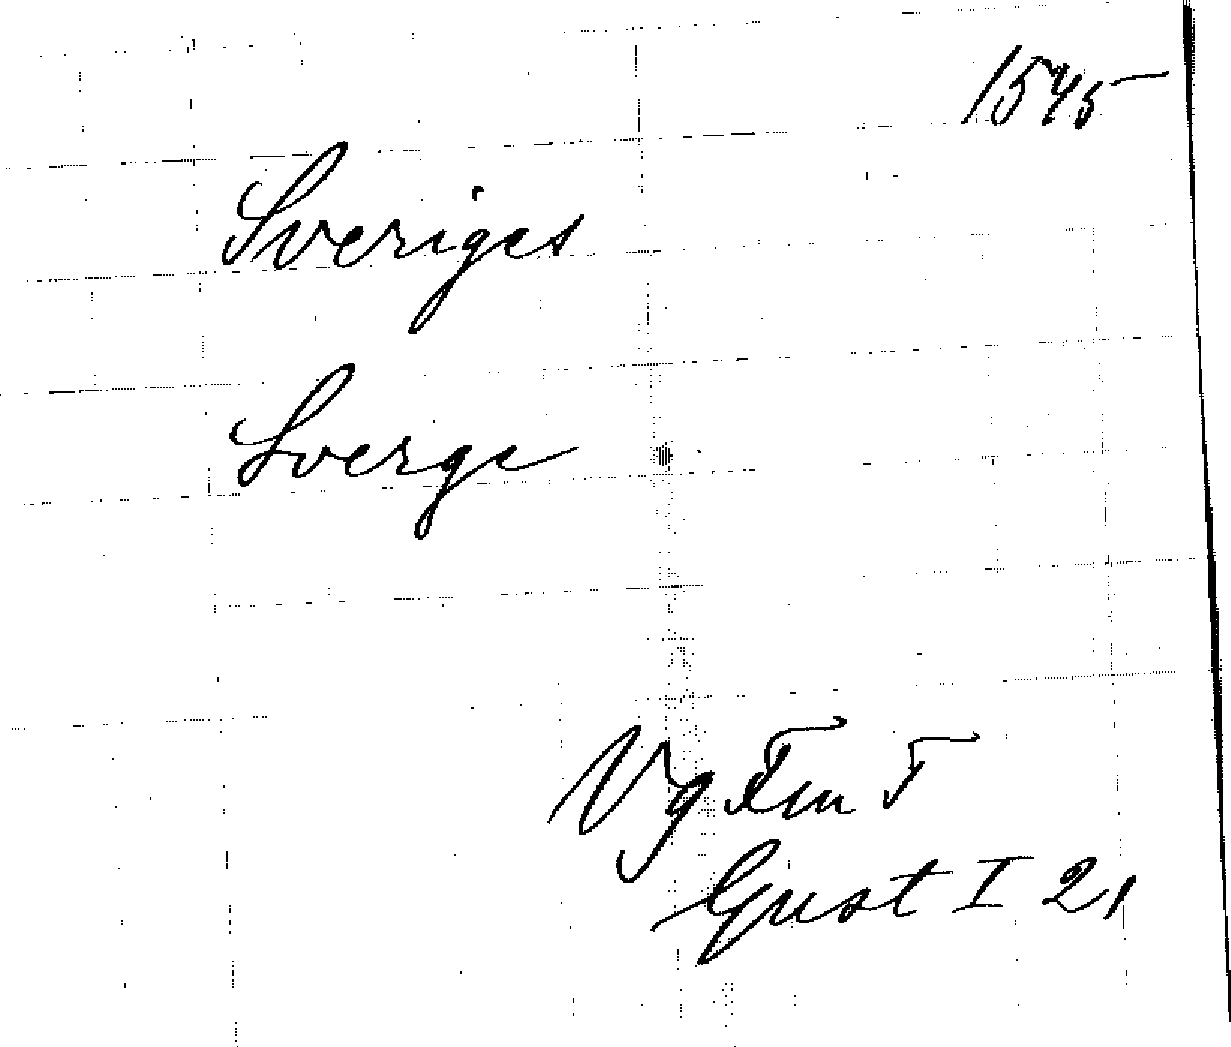 1545
Sveriges
Sverge
Vg Fm F
Gust I 21